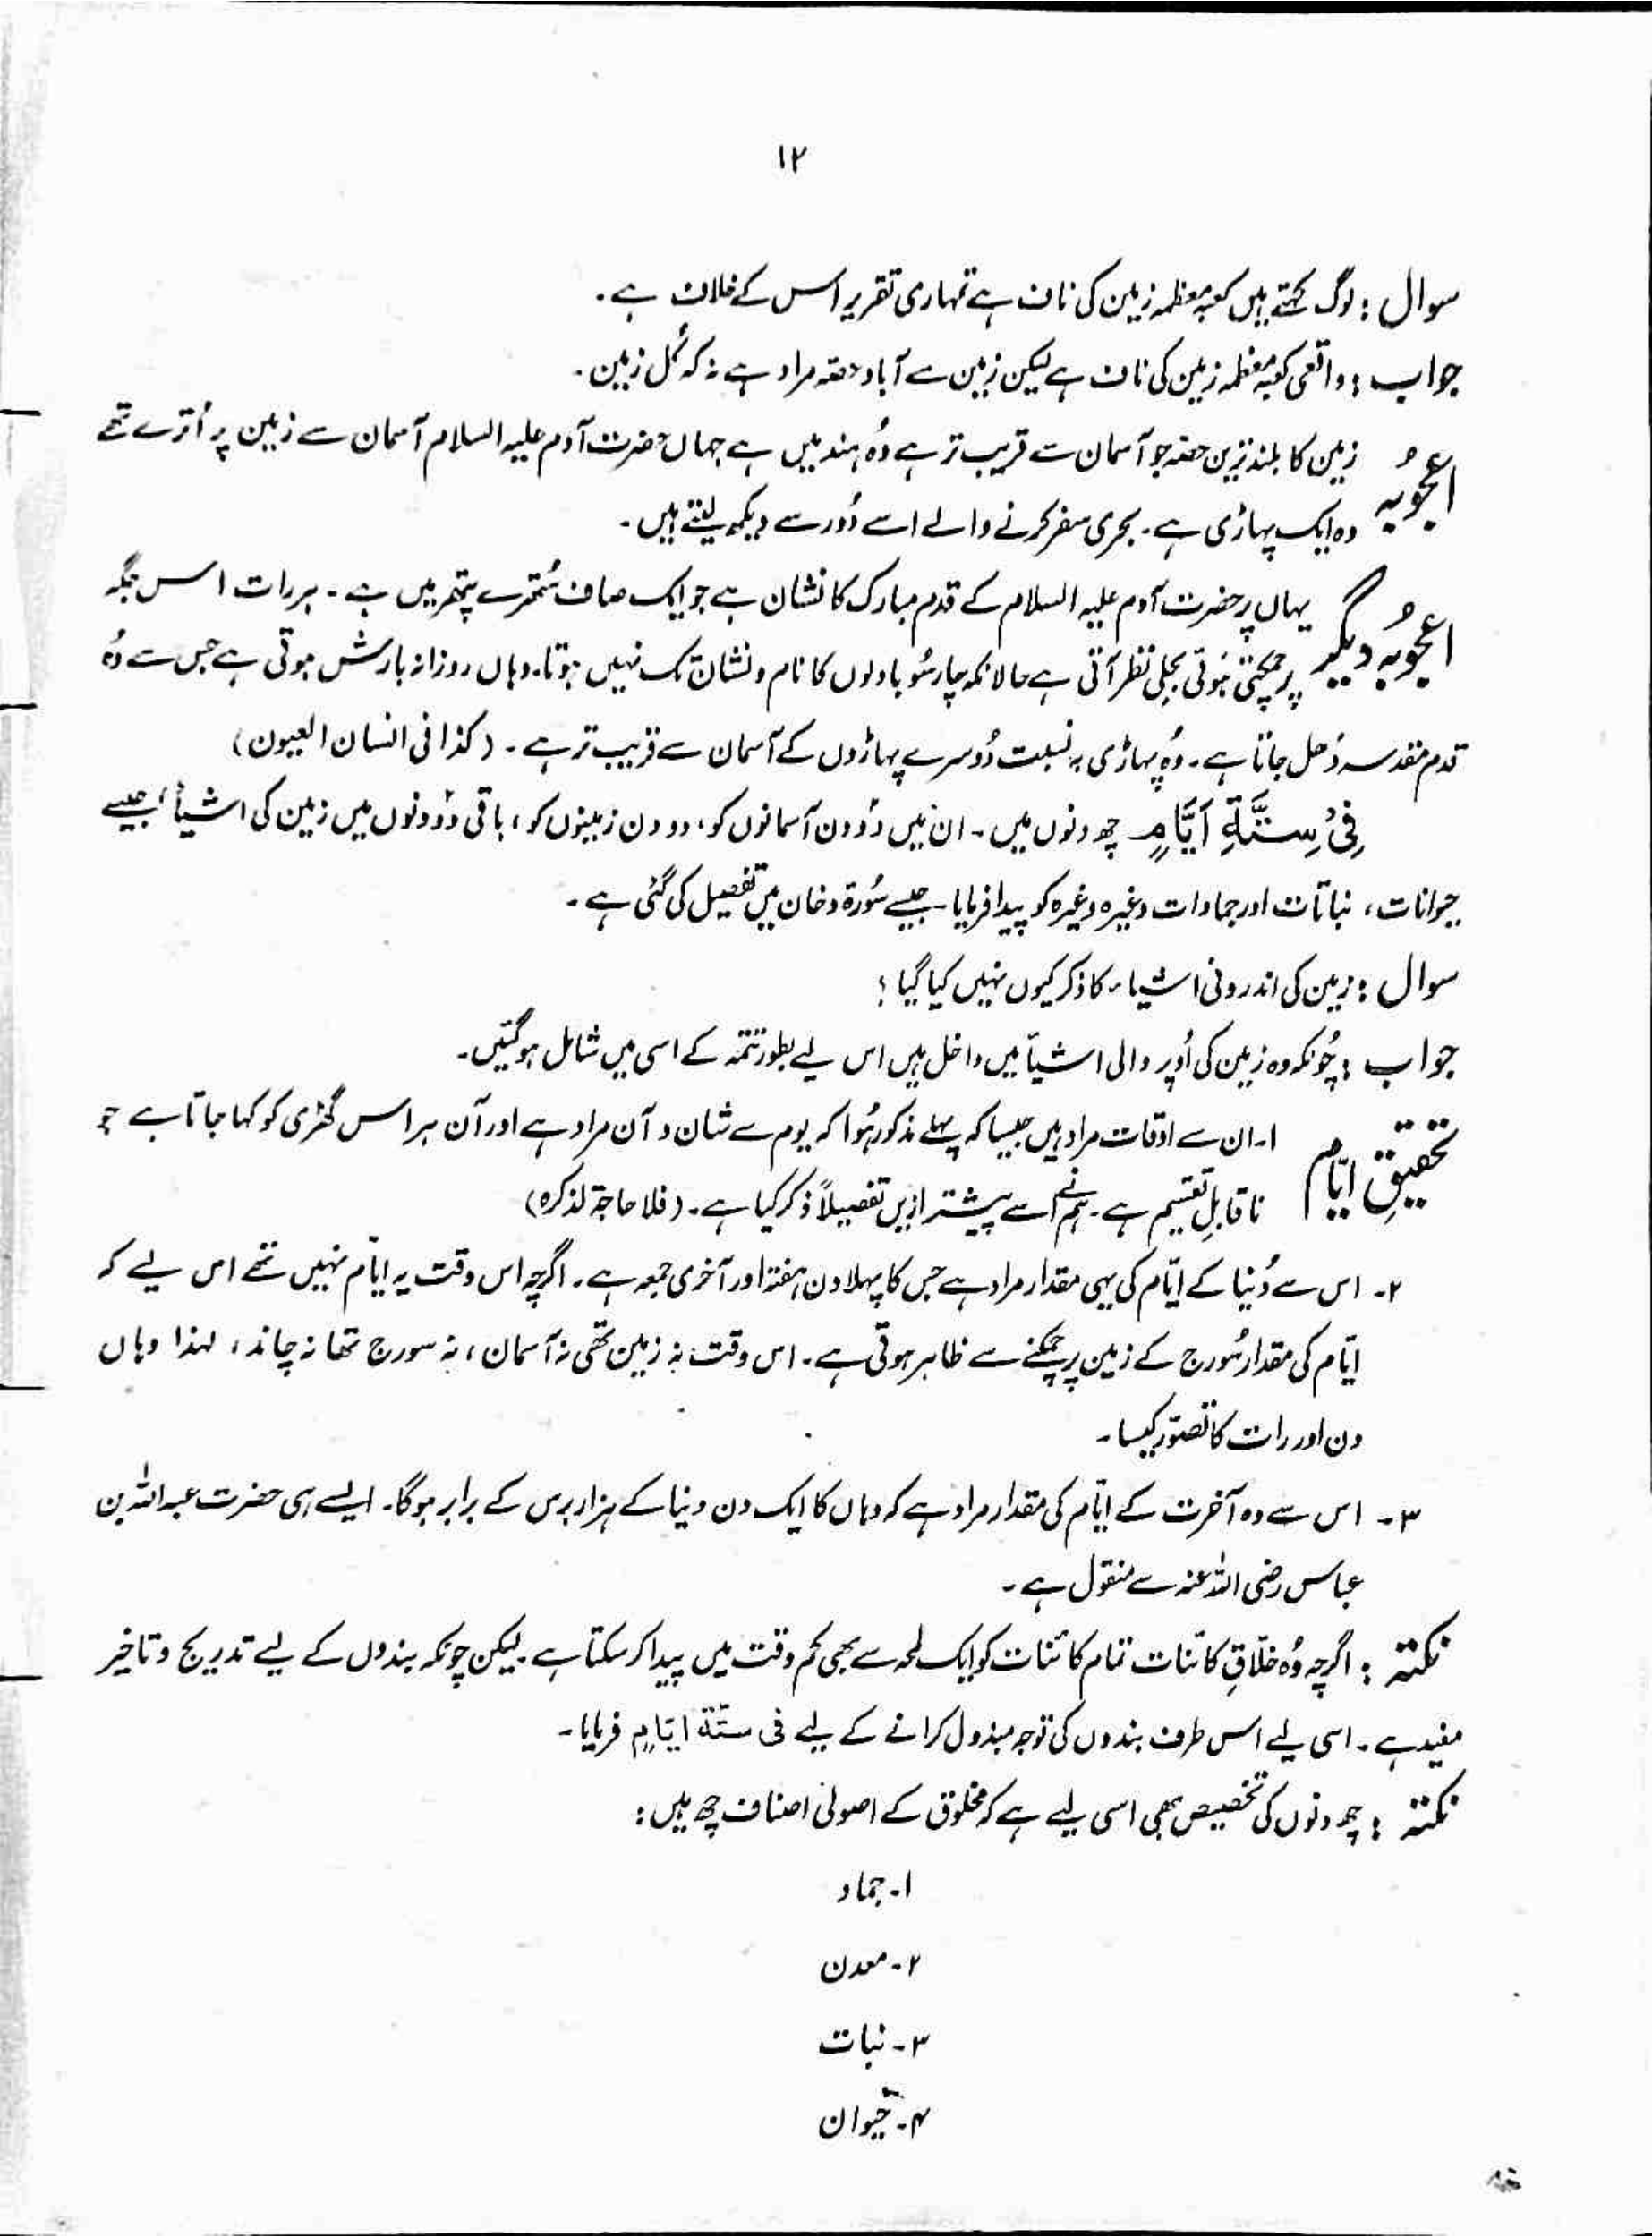 ۱۲
سوال : لوگ کہتے ہیں کعبہ معظمہ زمین کی ناف ہے تمہاری تقریر اس کے خلاف ہے۔
جواب : واقعی کعبہ معظمہ زمین کی ناف ہے لیکن زمین سے آباد حصّہ مراد ہے نہ کہ کُل زمین۔
اعجُوبہ زمین کا بلند ترین حصّہ جو آسمان سے قریب تر ہے وُہ ہند میں ہے جہاں حضرت آدم علیہ السلام آسمان سے زمین پر اُترے تھے
وہ ایک پہاڑی ہے۔ بحری سفر کرنے والے اسے دُور سے دیکھ لیتے ہیں۔
اعجُوبہ دیگر یہاں پر حضرت آدم علیہ السلام کے قدم مبارک کا نشان ہے جو ایک صاف سُتھرے پتھر میں ہے۔ ہر رات اس جگہ
پر چمکتی ہُوئی بجلی نظر آتی ہے حالانکہ چار سُو بادلوں کا نام و نشان تک نہیں ہوتا۔ وہاں روزانہ بارش ہوتی ہے جس سے وُہ
قدم مقدسہ دُھل جاتا ہے۔ وُہ پہاڑی بہ نسبت دُوسرے پہاڑوں کے آسمان سے قریب تر ہے۔ (کذا فی انسان العیون)
فِیْ سِتَّةِ اَیَّامٍ چھ دنوں میں۔ ان میں دُو دن آسمانوں کو، دو دن زمینوں کو، باقی دُو دنوں میں زمین کی اشیأ، جیسے
حیوانات، نباتات اور جمادات وغیرہ وغیرہ کو پیدا فرمایا۔ جیسے سُورۃ دخان میں تفصیل کی گئی ہے۔
سوال : زمین کی اندرونی اشیاء کا ذکر کیوں نہیں کیا گیا ؟
جواب : چُونکہ وہ زمین کی اُوپر والی اشیأ میں داخل ہیں اس لیے بطور تتمہ کے اسی میں شامل ہوگئیں۔
تحقیقِ ایّام ۱۔ ان سے اوقات مراد ہیں جیسا کہ پہلے مذکور ہُوا کہ یوم سے شان و آن مراد ہے اور آن ہر اس گھڑی کو کہا جاتا ہے جو
ناقابلِ تقسیم ہے۔ ہم نے اسے پیشتر ازیں تفصیلاً ذکر کیا ہے۔ (فلا حاجة لذکرہ)
۲۔ اس سے دُنیا کے ایّام کی یہی مقدار مراد ہے جس کا پہلا دن ہفتہ اور آخری جمعہ ہے۔ اگرچہ اس وقت یہ ایّام نہیں تھے اس لیے کہ
ایّام کی مقدار سُورج کے زمین پر چمکنے سے ظاہر ہوتی ہے۔ اس وقت نہ زمین تھی نہ آسمان، نہ سورج تھا نہ چاند، لہذا وہاں
دن اور رات کا تصوّر کیسا۔
۳۔ اس سے وہ آخرت کے ایّام کی مقدار مراد ہے کہ وہاں کا ایک دن دنیا کے ہزار برس کے برابر ہوگا۔ ایسے ہی حضرت عبداللہ بن
عباس رضی اللہ عنہ سے منقول ہے۔
نکتہ : اگرچہ وُہ خلّاقِ کائنات تمام کائنات کو ایک لمحہ سے بھی کم وقت میں پیدا کرسکتا ہے لیکن چونکہ بندوں کے لیے تدریج و تاخیر
مفید ہے۔ اسی لیے اس طرف بندوں کی توجہ مبذول کرانے کے لیے فی ستّة ایّامٍ فرمایا۔
نکتہ : چھ دنوں کی تخصیص بھی اسی لیے ہے کہ مخلوق کے اصولی اصناف چھ ہیں :
۱۔ جماد
۲۔ معدن
۳۔ نبات
۴۔ حیوان